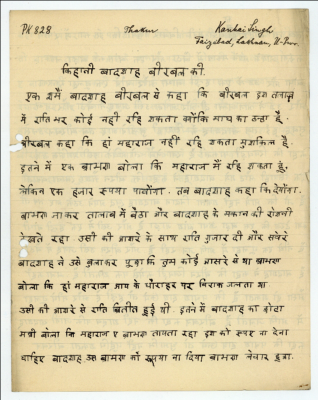 PK 828
Thakur
Kanhai Singh
Faizabad, Lakhnau, U. Prov.
किहानी बादशाह बीरबल की.
एक समैं बादशाह बीरबल से कहा कि बीरबल इस तलाब
में रात्रि भर कोई नहीं रहि शकता क्योंकि माघ का ठन्ढा है.
बीरबल कहा कि हां महाराज नहीं रहि शकता मुशकिल है.
इतने में एक बाभण बोला कि महाराज मैं रहि शकता हुं.
लेकिन एक हजार रुपया पावोंगा. तब बादशाह कहा कि देवोंगा.
बाभण जाकर तालाब में बैठा और बादशाह के मकान की रोसनी
देखते रहा उसी की आशरे के साथ राति गुजार दी और सवेरे
बादशाह ने उसे बुलाकर पूछा कि तुम कोई आसरे से था बाभण
बोला कि हां महाराज आप के धौराहर पर चिराक जलता था
उसी की आशरे से राति बितीत हुई थी इतने में बादशाह का छोटा
मंत्री बोला कि महाराज ए बाभण तापता रहा इस को रुपए ना देना
चाहिए बादशाह उस बाभण को रूपया ना दिया बाभण लेचार हुवा.